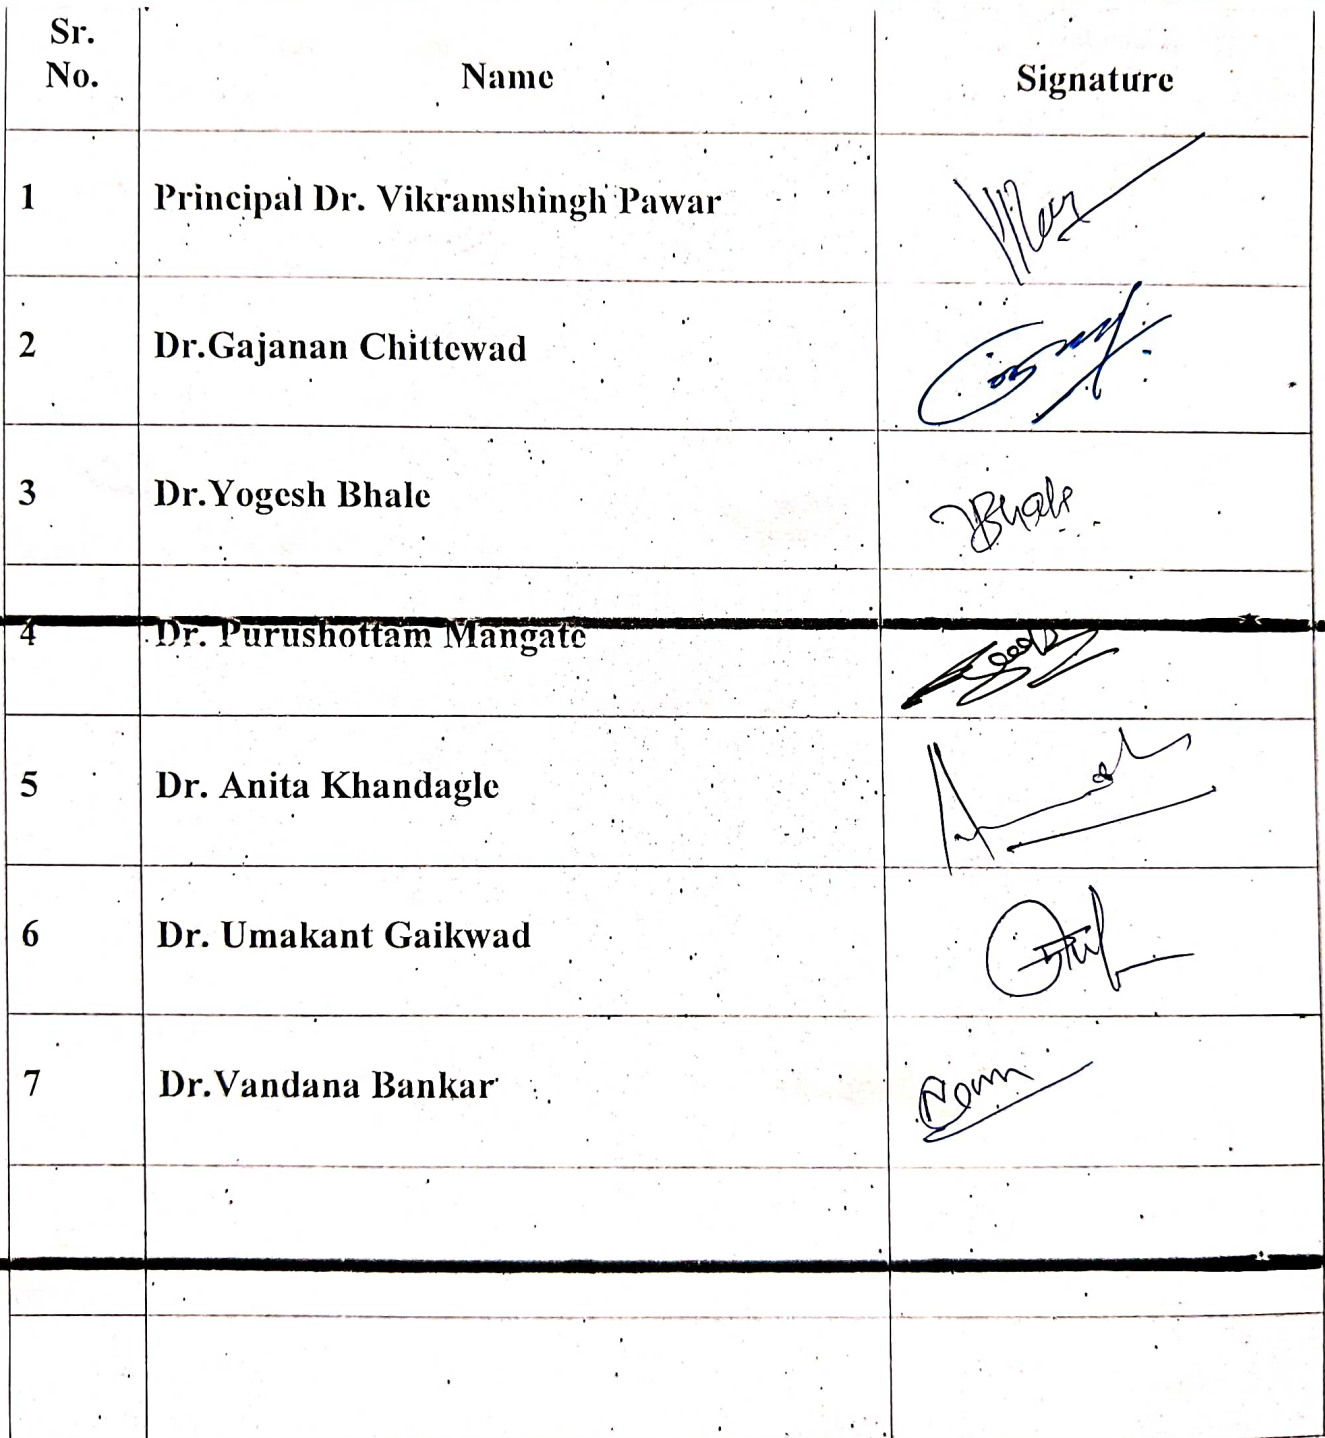 Sr.
No.
Name
Signature
1
Principal Dr. Vikramshingh Pawar
2
Dr.Gajanan Chittewad
3
Dr.Yogesh Bhale
YBhale
4
Dr. Purushottam Mangate
5
Dr. Anita Khandagle
6
Dr. Umakant Gaikwad
7
Dr.Vandana Bankar